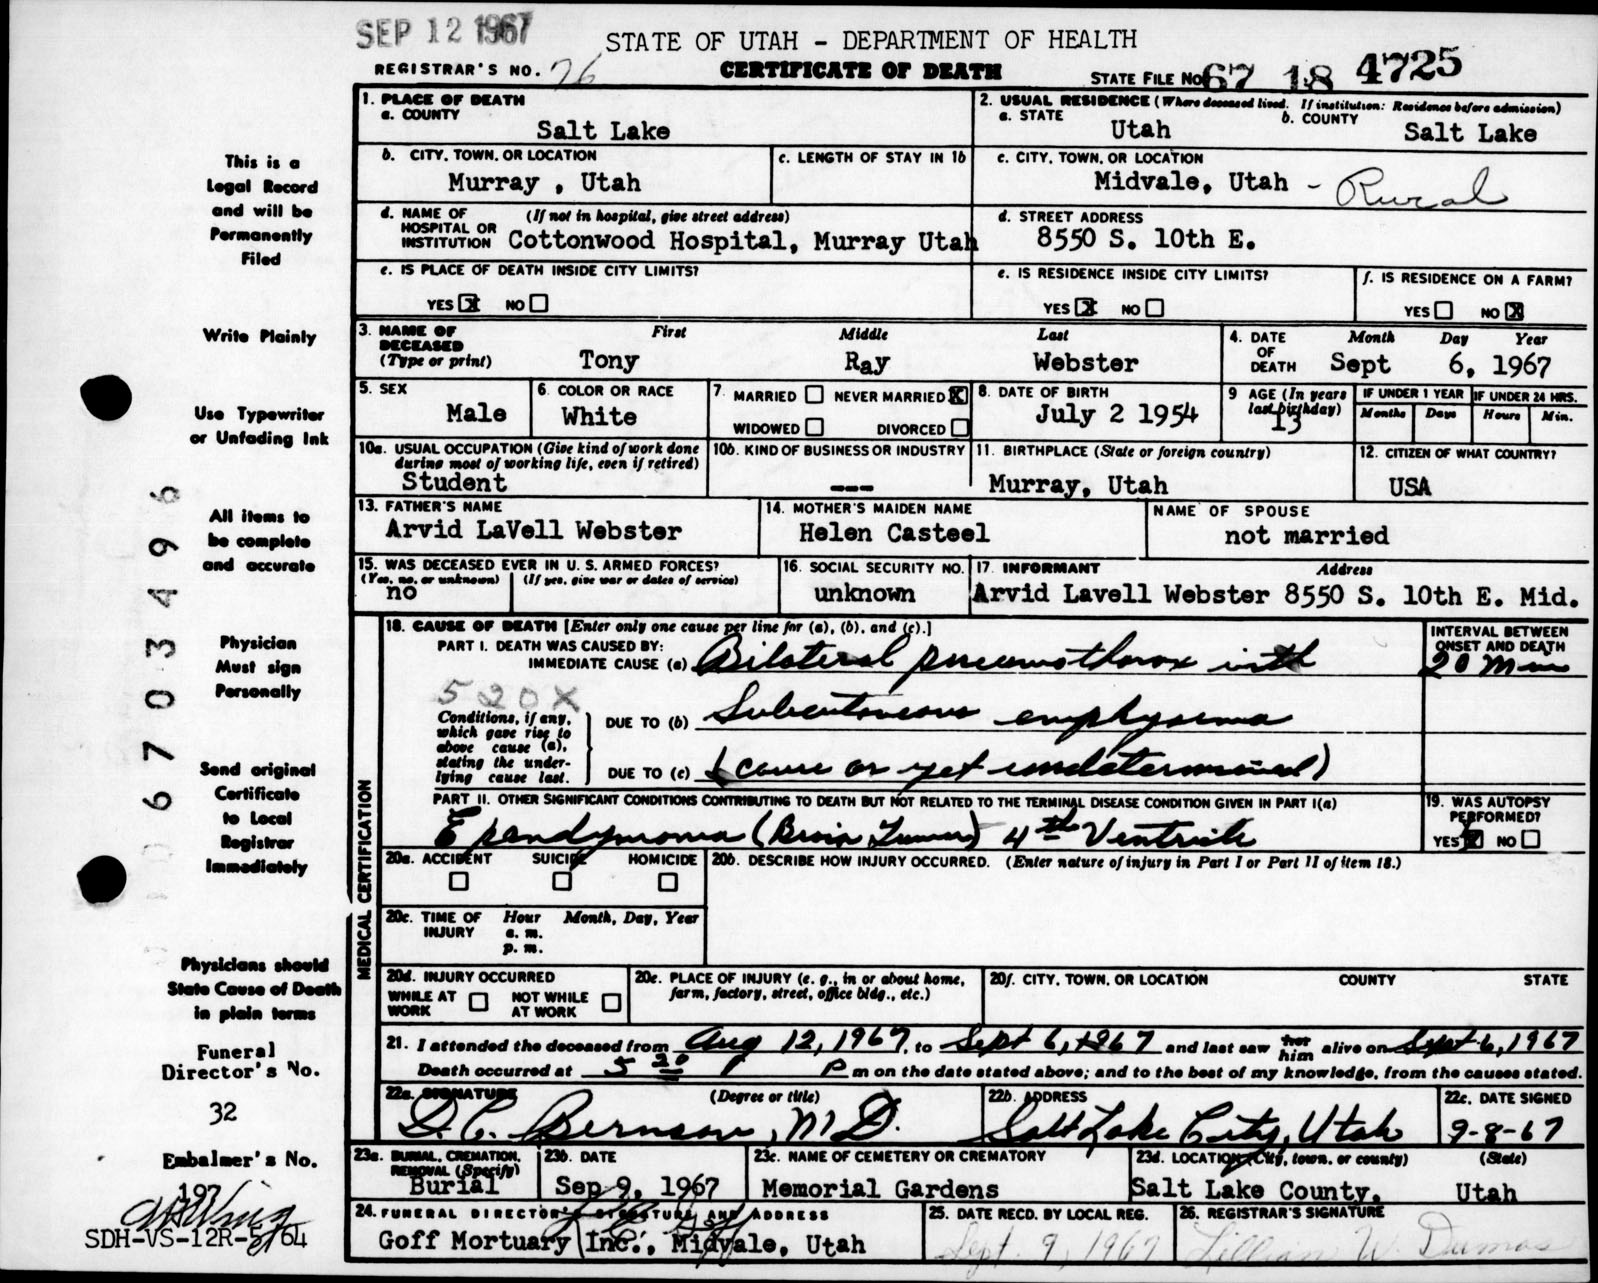 SEP 12 1967
STATE OF UTAH - DEPARTMENT OF HEALTH
REGISTRAR'S NO. 76
CERTIFICATE OF DEATH
STATE FILE No. 67 18 4725
1. PLACE OF DEATH
a. COUNTY
Salt Lake
2. USUAL RESIDENCE (Where deceased lived. If institution: Residence before admission)
a. STATE
Utah
b. COUNTY
Salt Lake
b. CITY, TOWN, OR LOCATION
Murray , Utah
c. LENGTH OF STAY IN 1b
c. CITY, TOWN, OR LOCATION
Midvale, Utah - Rural
d. NAME OF HOSPITAL OR INSTITUTION
(If not in hospital, give street address)
Cottonwood Hospital, Murray Utah
d. STREET ADDRESS
8550 S. 10th E.
e. IS PLACE OF DEATH INSIDE CITY LIMITS?
YES X NO
e. IS RESIDENCE INSIDE CITY LIMITS?
YES X NO
f. IS RESIDENCE ON A FARM?
YES NO X
3. NAME OF DECEASED
(Type or print)
First Middle Last
Tony Ray Webster
4. DATE OF DEATH
Month Day Year
Sept 6, 1967
5. SEX
Male
6. COLOR OR RACE
White
7. MARRIED NEVER MARRIED X
WIDOWED DIVORCED
8. DATE OF BIRTH
July 2 1954
9 AGE (In years last birthday)
13
IF UNDER 1 YEAR
Months Days
IF UNDER 24 HRS.
Hours Min.
10a. USUAL OCCUPATION (Give kind of work done during most of working life, even if retired)
Student
10b. KIND OF BUSINESS OR INDUSTRY
---
11. BIRTHPLACE (State or foreign country)
Murray, Utah
12. CITIZEN OF WHAT COUNTRY?
USA
13. FATHER'S NAME
Arvid LaVell Webster
14. MOTHER'S MAIDEN NAME
Helen Casteel
NAME OF SPOUSE
not married
15. WAS DECEASED EVER IN U. S. ARMED FORCES?
(Yes, no, or unknown) (If yes, give war or dates of service)
no
16. SOCIAL SECURITY NO.
unknown
17. INFORMANT Address
Arvid Lavell Webster 8550 S. 10th E. Mid.
MEDICAL CERTIFICATION
18. CAUSE OF DEATH [Enter only one cause per line for (a), (b), and (c).]
PART I. DEATH WAS CAUSED BY:
IMMEDIATE CAUSE (a) Bilateral pneumothorax with
INTERVAL BETWEEN ONSET AND DEATH
20 Min
520X
Conditions, if any, which gave rise to above cause (a), stating the underlying cause last.
DUE TO (b) Subcutaneous emphysema
DUE TO (c) (cause as yet undetermined)
PART II. OTHER SIGNIFICANT CONDITIONS CONTRIBUTING TO DEATH BUT NOT RELATED TO THE TERMINAL DISEASE CONDITION GIVEN IN PART I(a)
Ependymoma (Brain Tumor) 4th Ventricle
19. WAS AUTOPSY PERFORMED?
YES X NO
20a. ACCIDENT SUICIDE HOMICIDE
20b. DESCRIBE HOW INJURY OCCURRED. (Enter nature of injury in Part I or Part II of item 18.)
20c. TIME OF INJURY
Hour Month, Day, Year
a. m.
p. m.
20d. INJURY OCCURRED
WHILE AT WORK
NOT WHILE AT WORK
20e. PLACE OF INJURY (e. g., in or about home, farm, factory, street, office bldg., etc.)
20f. CITY, TOWN, OR LOCATION COUNTY STATE
21. I attended the deceased from Aug 12, 1967, to Sept 6, 1967 and last saw her him alive on Sept 6, 1967
Death occurred at 5 20 P m on the date stated above; and to the best of my knowledge, from the causes stated.
22a. SIGNATURE (Degree or title)
D. C. Bernson, M.D.
22b. ADDRESS
Salt Lake City, Utah
22c. DATE SIGNED
9-8-67
23a. BURIAL, CREMATION, REMOVAL (Specify)
Burial
23b. DATE
Sep 9, 1967
23c. NAME OF CEMETERY OR CREMATORY
Memorial Gardens
23d. LOCATION (City, town, or county) (State)
Salt Lake County, Utah
24. FUNERAL DIRECTOR'S SIGNATURE AND ADDRESS
Goff Mortuary Inc., Midvale, Utah
25. DATE RECD. BY LOCAL REG.
Sept. 9, 1967
26. REGISTRAR'S SIGNATURE
Lillian W. Dumas
This is a
Legal Record
and will be
Permanently
Filed
Write Plainly
Use Typewriter
or Unfading Ink
All items to
be complete
and accurate
Physician
Must sign
Personally
Send original
Certificate
to Local
Registrar
Immediately
Physicians should
State Cause of Death
in plain terms
Funeral
Director's No.
32
Embalmer's No.
197
SDH-VS-12R-5/64
6703496